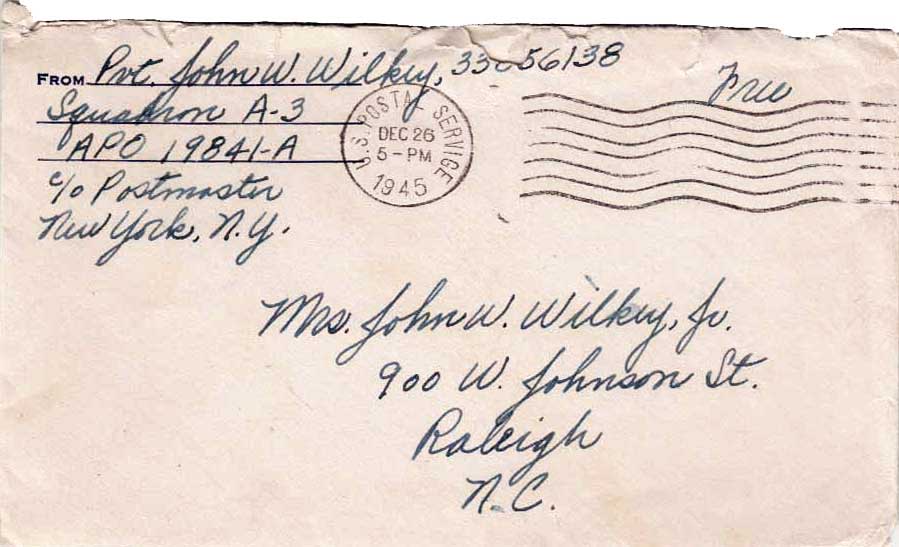 FROM Pvt. John W. Wilkey, 33656138
Squadron A-3
APO 19841-A
c/o Postmaster
New York, N.Y.
U.S. POSTAL SERVICE
DEC 26
5-PM
1945
Free
Mrs. John W. Wilkey, Jr.
900 W. Johnson St.
Raleigh
N.C.